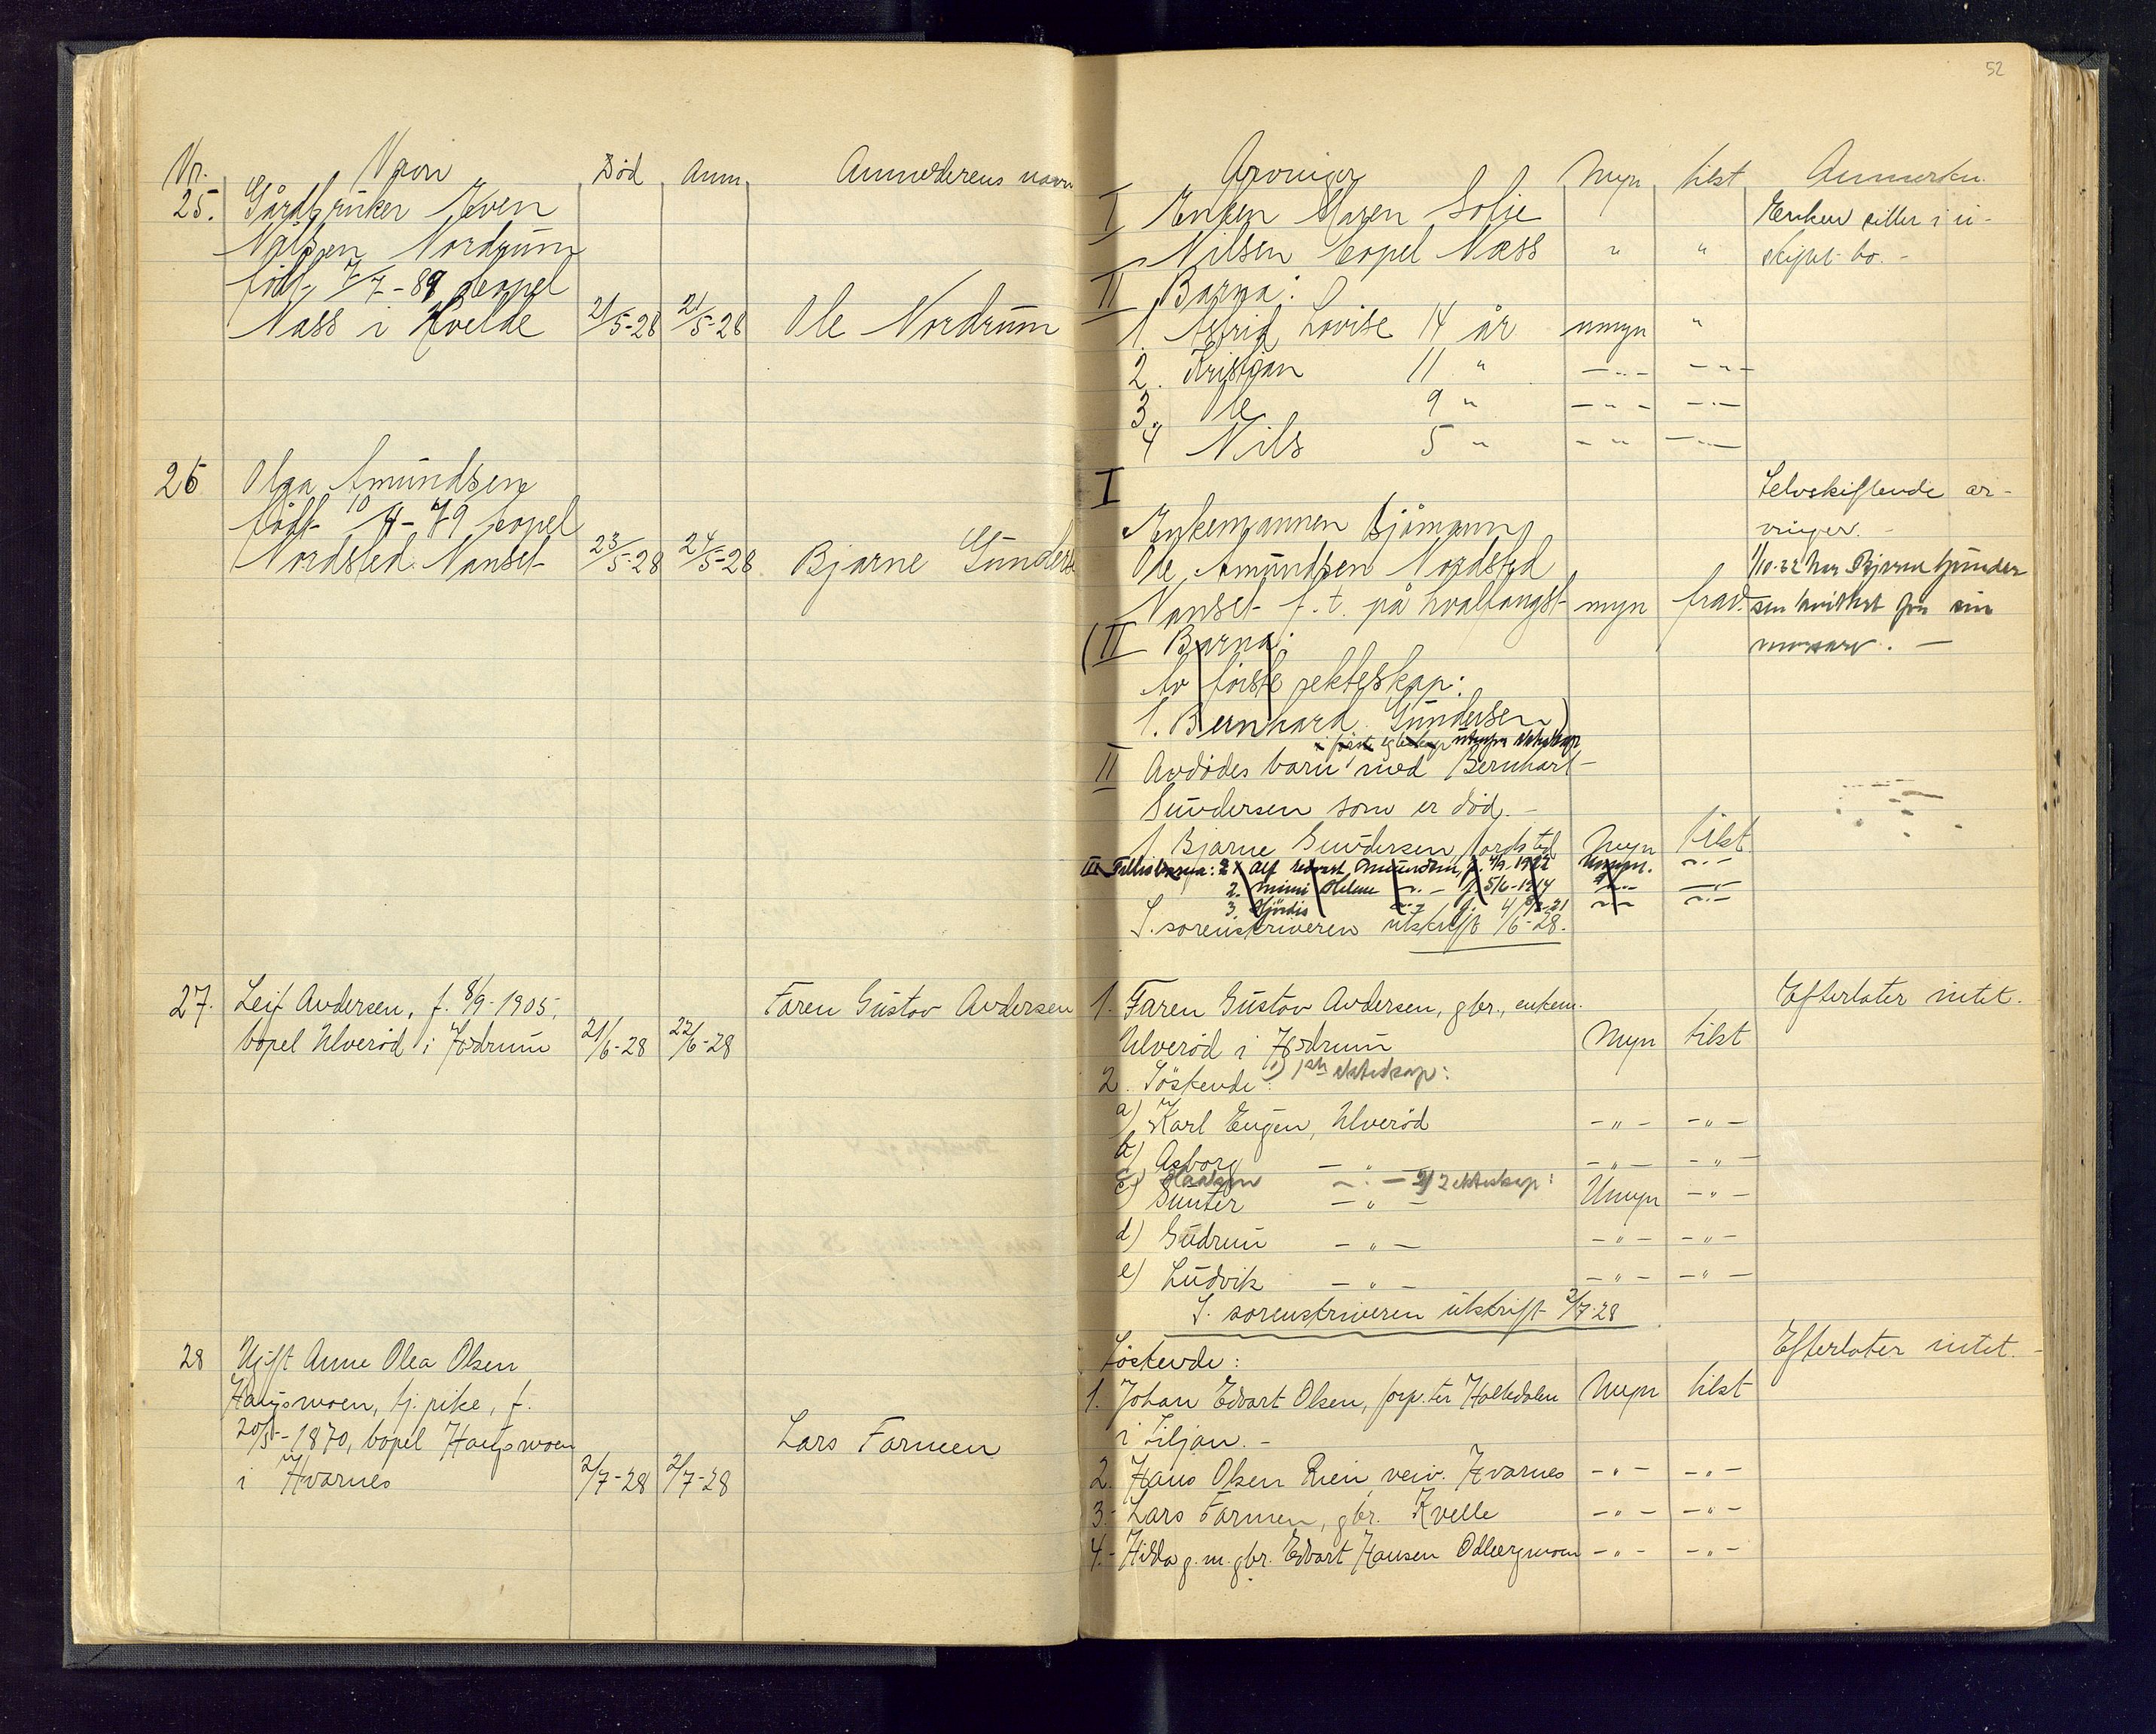 52
Nr. Navn Död Anm. Anmelderens navn
25. Gårdbruker Even
Nilsen Nordrum
född 7/7-89 bopel
Næss i Kvelde 21/5-28 21/5-28 Ole Nordrum
26 Olga Amundsen
født 10/4-79 bopel
Nordsted Nanset 23/5-28 24/5-28 Bjarne Gunders
27. Leif Andersen, f. 8/9-1905,
bopel Ulveröd i Hedrum 21/6-28 22/6-28 Faren Gustav Andersen
28 Ugift Anne Olea Olsen
Haugsmoen, tj. pike, f.
20/5-1870, bopel Haugsmoen
i Hvarnes 2/7-28 2/7-28 Lars Farmen
Arvinger Myn tilst Anmerkn.
I Enken Maren Sofie Enken sitter i u-
Nilsen bopel Næss " " skiftet bo. -
II Barna:
1. Astrid Lovise 14 år umyn "
2. Kristian 11 " -"- -"-
3. Ole 9 " -"- -"-
4 Nils 5 " -"- -"-
I Selvskiftende ar-
Enkemannen Sjömann vinger. -
Ole Amundsen Nordsted 1/10-32 har Bjarne Gunder
Nanset f. t. på hvalfangst myn frav. sen kvittert for sin
(II Barna: morsarv. -
Av første ekteskap:
1. Bernhard Gundersen)
i första egteskap utenfor ekteskap
II Avdödes barn med Bernhart
Gundersen som er död. -
1. Bjarne Gundersen, Nordsted Myn tilst
III Fellesbarna: 1. Alf Edvart Amundsen, f. 4/9. 1912 Umyn. -"-
2. Mimi Helene -"- f. 5/6-1914 -"- -"-
3. Hjördis -"- f. -21 -"- -"-
S. sorenskriveren utskrift 1/6-28.
1. Faren Gustav Andersen, gbr., enkem. Efterlater intet.
Ulveröd i Hedrum Myn tilst
2. Söskende: 1) 1ste ekteskap:
a) Karl Eugen, Ulveröd -"- -"-
b) Asborg -"- -"- -"-
c) Haakon -"- 2) 2 ekteskap:
c) Gunter -"- Umyn -"-
d) Gudrun -"- -"- -"-
e) Ludvik -"- -"- -"-
S. sorenskriveren utskrift 2/7-28
Söskende: Efterlater intet. -
1. Johan Edvart Olsen, forp.ter Holtedalen Myn tilst
i Siljan. -
2. Hans Olsen Rien, veiv. Hvarnes -"- -"-
3. Lars Farmen, gbr. Kvelle -"- -"-
4. Hilda g. m. gbr. Edvart Hansen Odbergmoen -"- -"-